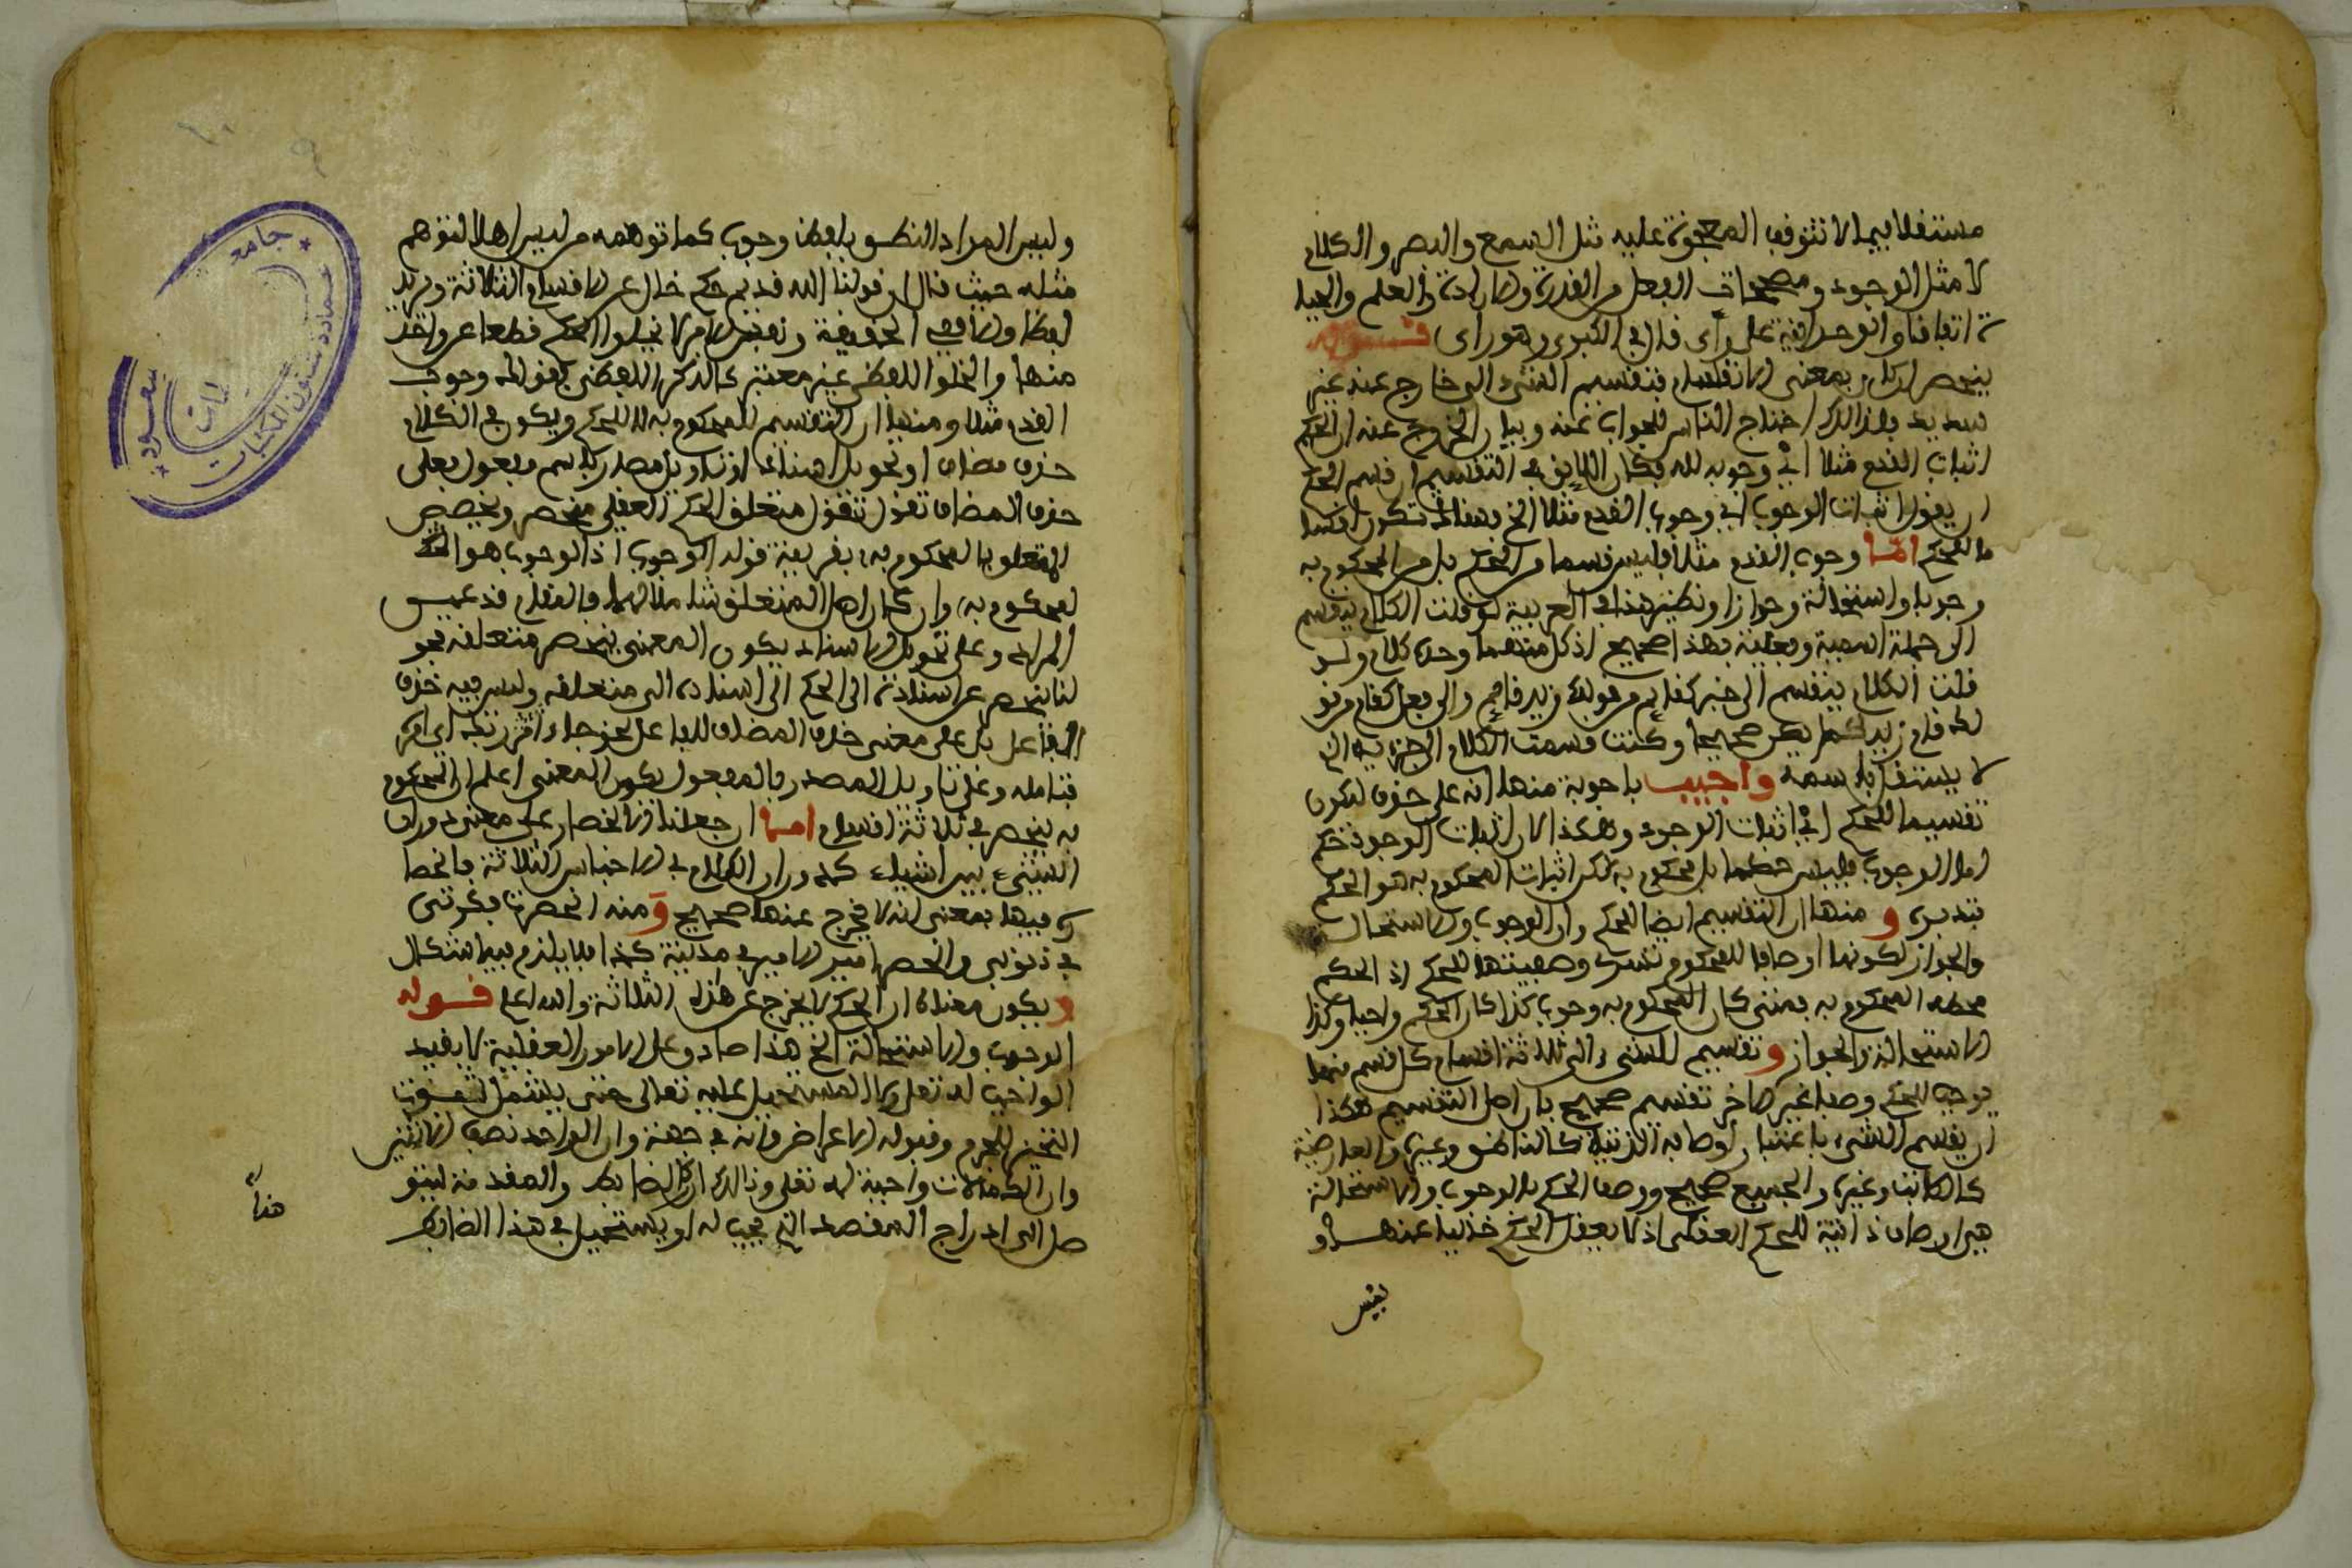 مستقلا فيما لا تتوقف المعجزة عليه مثل السمع والبصر والكلام
لا مثل الوجود ومصححات الفعل من القدرة والارادة والعلم والحيا
ة اتفاقا والوحدانية على رأى قال في الكبرى وهو رأى قوله
ينحصر ان كان بمعنى الانقسام فتقسيم الشيء الى خارج عنه غير
سديد فلذالك احتاج الناس للجواب عنه وبيان الخروج عنه ان الحكم
اثبات القدم مثلا أي وجوبه لله فكان اللايق في التقسيم ان قسم الحكم
ان يقول اثبات الوجوب أي وجوب القدم مثلا الخ فهناك تكون اقسا
ما للحكم امّا وجوب القدم مثلا فليس قسما من الحكم بل من المحكوم به
وجوبا واستحالة وجوازا ونظير هذا في العربية لو قلت الكلام ينقسم
الى جملة اسمية وفعلية فهذا صحيح اذ كل منهما وحده كلام ولو
قلت الكلام ينقسم الى خبر كقايم من قولك زيد قايم والى فعل كقام من قو
لك قام زيد لم يكن صحيحا وكنت قسمت الكلام الى جزئيه الذي
لا يستقل باسمه واجيب باجوبة منها انه على حذف ليكون
تقسيما للحكم أي اثبات الوجوب وهكذا لان اثبات الوجود حكم
اما الوجوب فليس حكما بل محكوم به لكن اثبات المحكوم به هو الحكم
فتدبره و منها ان التقسيم ايضا للحكم وان الوجوب والاستحال
والجواز لكونها اوصافا للمحكوم تسرى وصفيتها للحكم اذ الحكم
محطه المحكوم به فمتى كان المحكوم به وجوب كذا كان الحكم واجبا وكذا
الاستحالة والجواز وتقسيم الشيء الى ثلاثة اقسام كل قسم منها
يوجب للحكم وصفا غير الاخر تقسيم صحيح بل اصل التقسيم هكذا
ان يقسم الشيء باعتبار اوصافه الذتية كالناطق وغيره والعارضية
كالكاتب وغيره والجميع صحيح ووصف الحكم بالوجوب والاستحالة
هي اوصاف ذاتية للحكم العقلى اذ لا يعقل الحكم خاليا عنها و
ليس
وليس المراد النطق بلفظ وجوب كما توهمه من ليس اهلا لتوهم
مثله حيث قال ان قولنا الله قديم حكم خال عن الاقسام الثلاثة ويريد
لفظا ولا في الحقيقة ونفس الامر لا يخلوا الحكم قطعا عن واحد
منها والخلوا اللفظى غير معتبر كالذكر اللفظى كقولك وجوب
القدم مثلا ومنها ان التقسيم للمحكوم به لا للحكم ويكون في الكلام
حذف مضاف او تحويل اسناد او تاويل مصدر باسم مفعول فعلى
حذف المضاف تقول متعلق الحكم العقلى منحصر وتخصيص
المتعلق بالمحكوم به بقرينة قوله الوجوب اذ الوجوب هو
المحكوم به وان كان اصل المتعلق شاملا لهما فالمقام قد عيـن
المراد وعلى تحويل الاسناد يكون المعنى ينحصر متعلقه نحو
لنا ينحصر عن اسناده الى الحكم الى اسناده الى متعلقه وليس فيه حذف
الفاعل بل على معنى حذف المضاف للفاعل نحو جاء امر ربك اي امر
فتامله وعلى تاويل المصدر بالمفعول يكون المعنى اعلم ان المحكوم
به ينحصر في ثلاثة اقسام امـا ان جعلنا الانحصار على معنى دوران
الشيء بين اشياء كدوران الكلام في الاجناس الثلاثة فانحصا
ره فيها بمعنى انه لا يخرج عنها صحيح وَمنه انحصرت فكرتى
في ذنوبى وانحصر امير الامير في مدينة كذا فلا يلزم فيه اشكال
ويكون معناه ان الحكم لا يخرج عن هذه الثلاثة والله اعلم قـوله
الوجوب والاستحالة الخ هذا صادق على الامور العقلية لا بقيد
الواجب له تعلى ولا المستحيل عليه تعالى حتى يشتمل ثبوت
التحيز للجرم وقبوله الاعراض وانه في جهة وان الواحد نصف الاثنين
وان الكمالات واجبة له تعلى وذالك ان كل الضابط والمقدمة ليتو
صل الى ادراج المقصد الذي يجب له او يستحيل في هذا الضابط
هذا
جامعة
سعود
عمادة شؤون المكتبات